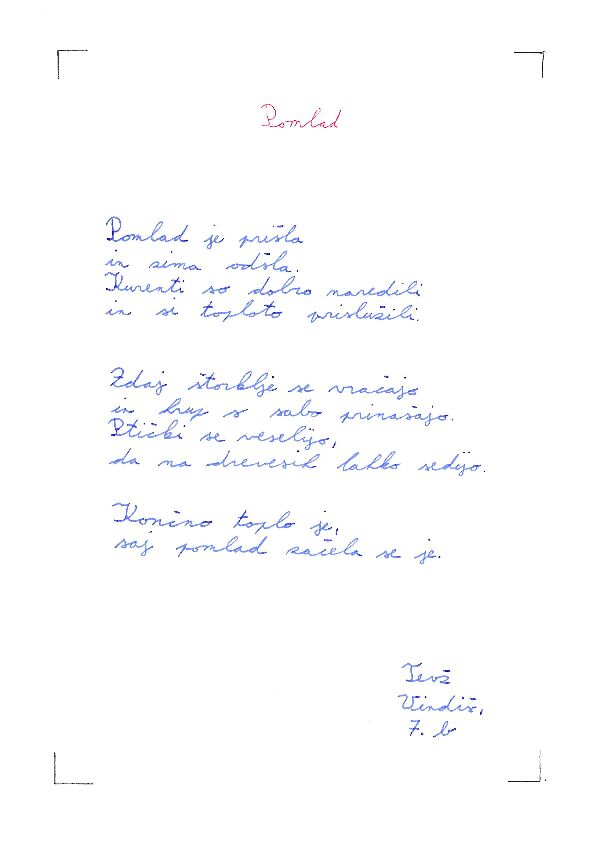 Pomlad
Pomlad je prišla
in zima odšla.
Kurenti so dobro naredili
in si toploto prislužili.
Zdaj štorklje se vračajo
in hrup s sabo prinašajo.
Ptički se veselijo,
da na drevesih lahko sedijo.
Končno toplo je,
saj pomlad začela se je.
Tevž
Vindiš,
7. b